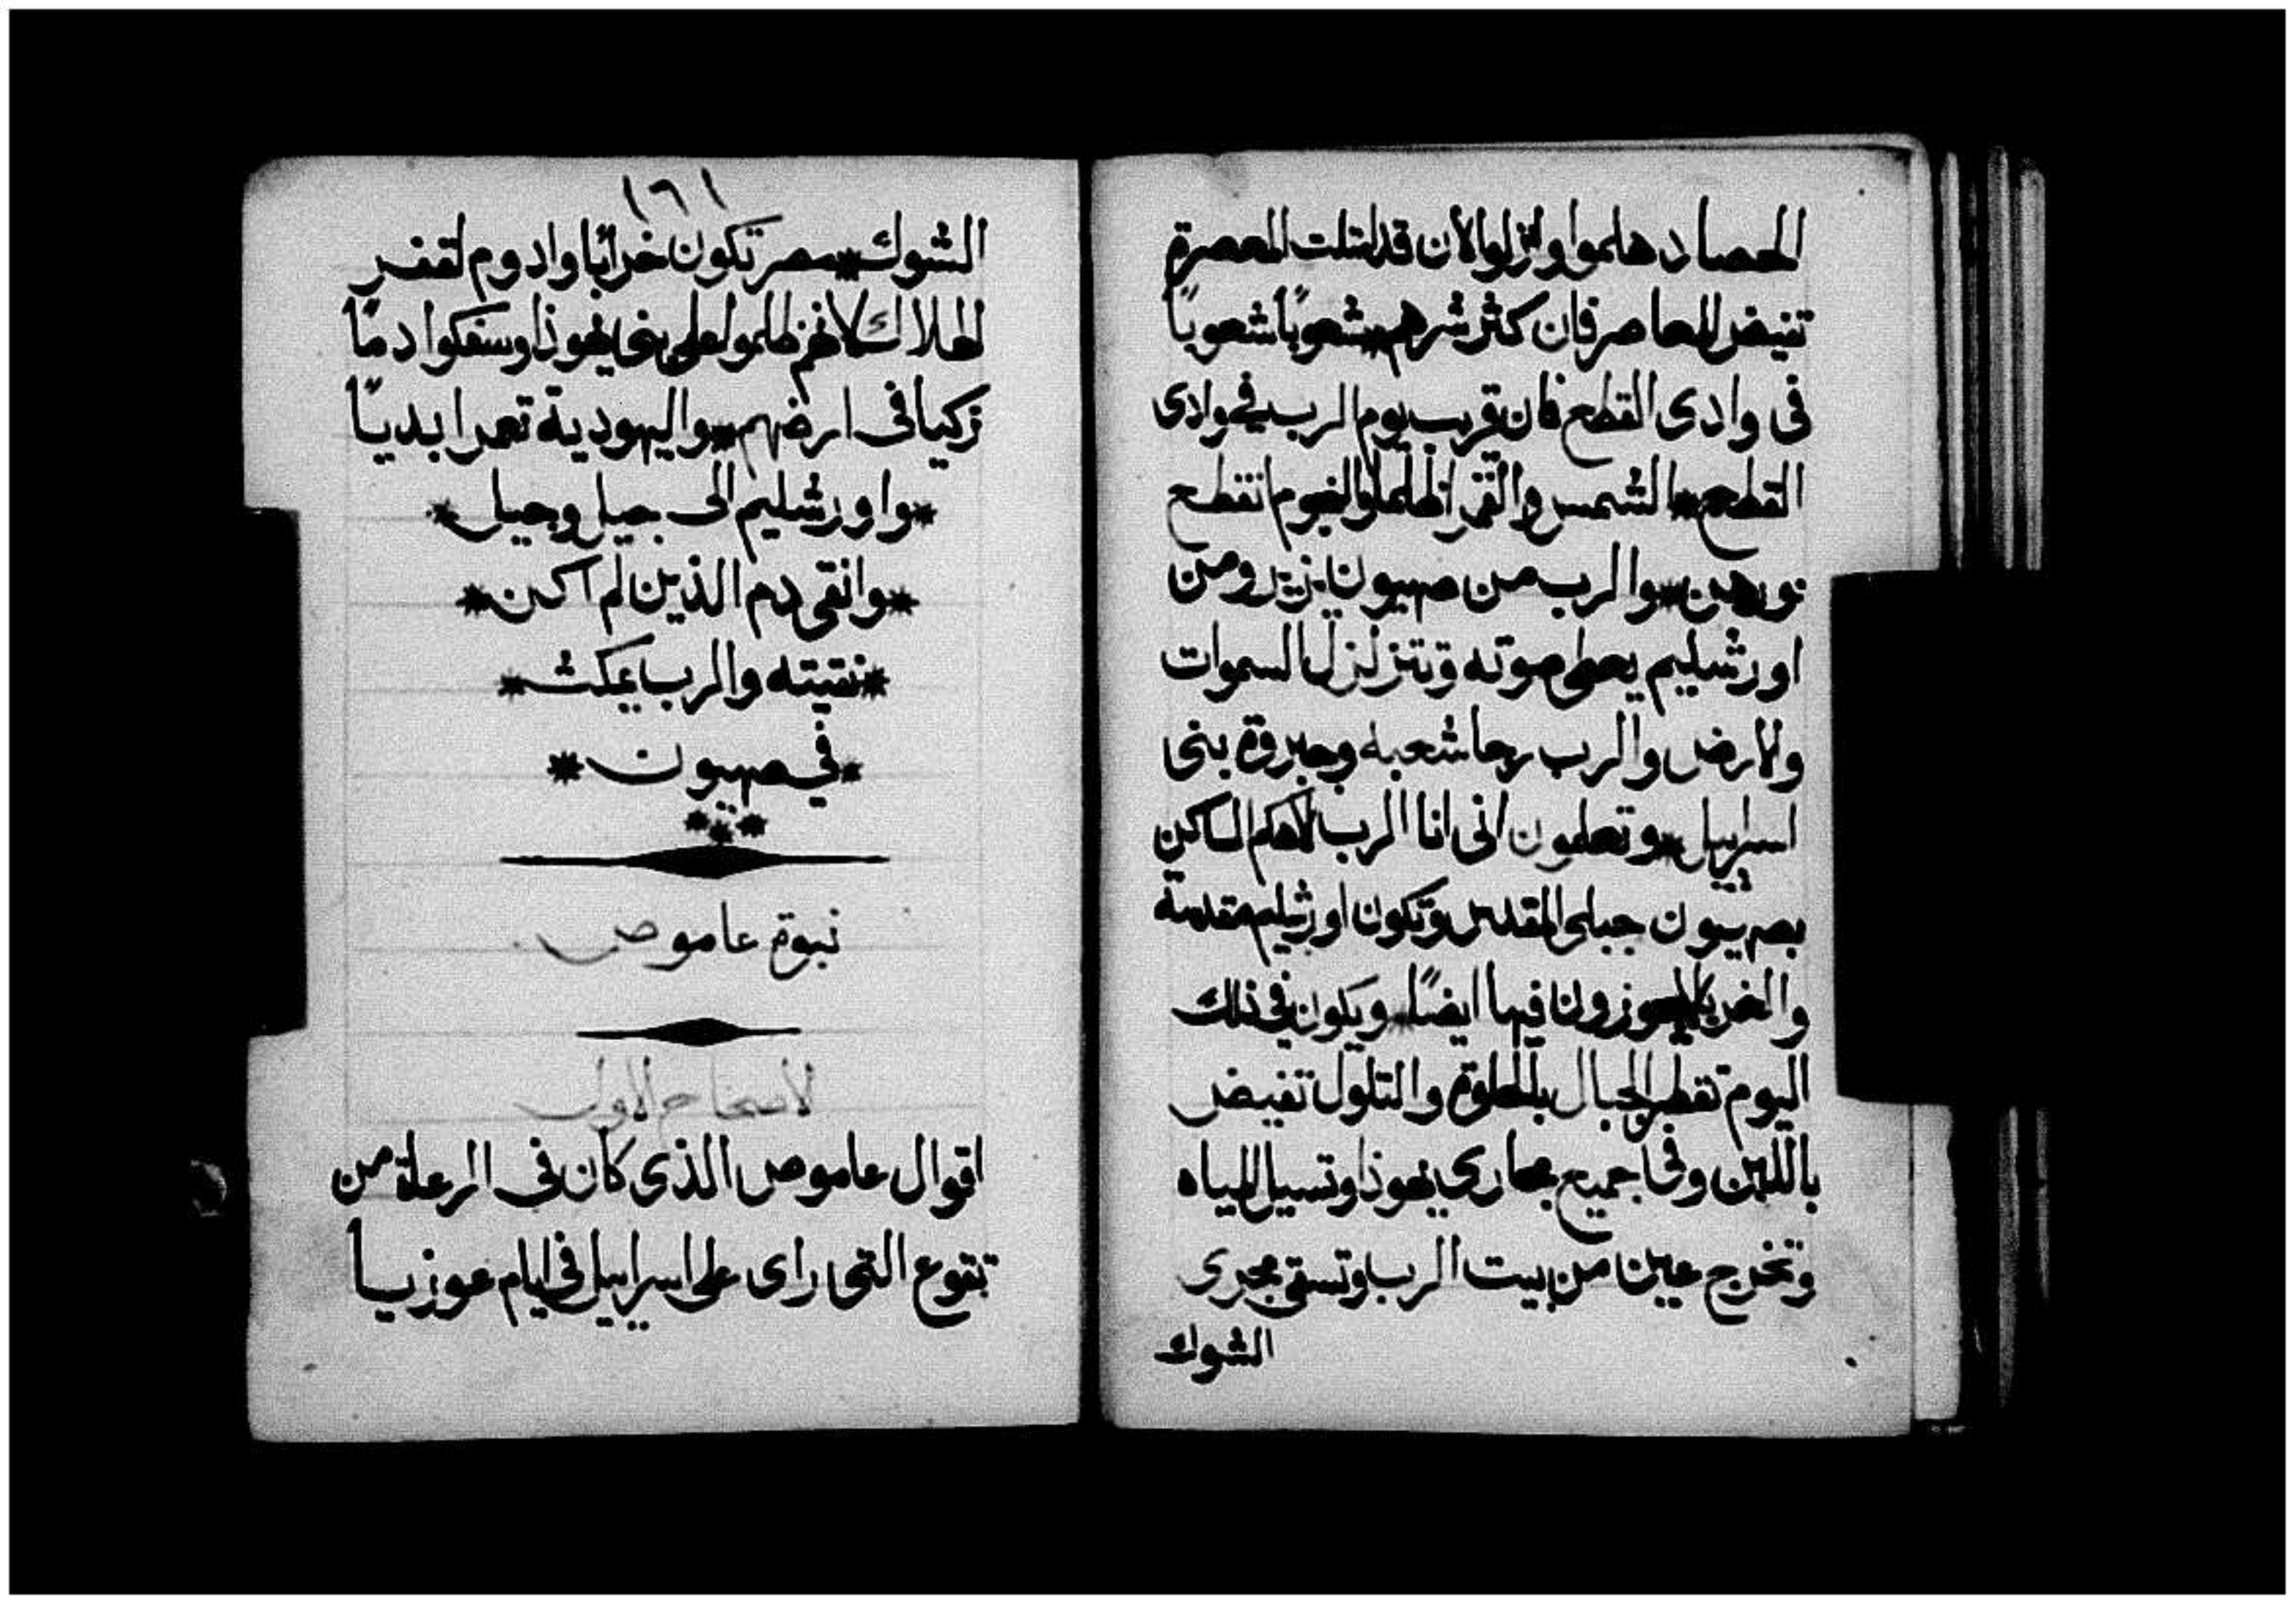 الحصاد هلموا وانزلوا لان قد امتلت المعصرة
تفيض المعاصر فان كثر شرهم * شعوبًا شعوبًا
فى وادى القطع فان قريب يوم الرب فى وادى
القطع * الشمس والقمر اظلما والنجوم انقطع
نورهن * والرب من صهيون يزير ومن
اورشليم يعطى صوته وتتزلزل السموات
والارض والرب رجا شعبه وجبروة بنى
اسراييل * وتعلمون انى انا الرب الاهكم الساكن
بصهيون جبلى المقدس وتكون اورشليم مقدسة
والغربا لا يجوزون فيها ايضًا * ويكون فى ذلك
اليوم تقطر الجبال بالحلاوة والتلول تفيض
باللبن وفى جميع مجارى يهوذا وتسيل المياه
وتخرج عين من بيت الرب وتسقى مجرى
الشوك
١٦١
الشوك * مصر تكون خرابًا وادوم لقفر
الهلاك لانهم ظلموا على بنى يهوذا وسفكوا دمًا
زكيا فى ارضهم * واليهودية تعمر ابديًا
* واورشليم الى جيل وجيل *
* وانقى دم الذين لم اكن *
* نقيته والرب يمكث *
* فى صهيون *
نبوة عاموص
الأصحاح الاول
اقوال عاموص الذى كان فى الرعاة من
تقوع التى راى على اسراييل فى ايام عوزيا